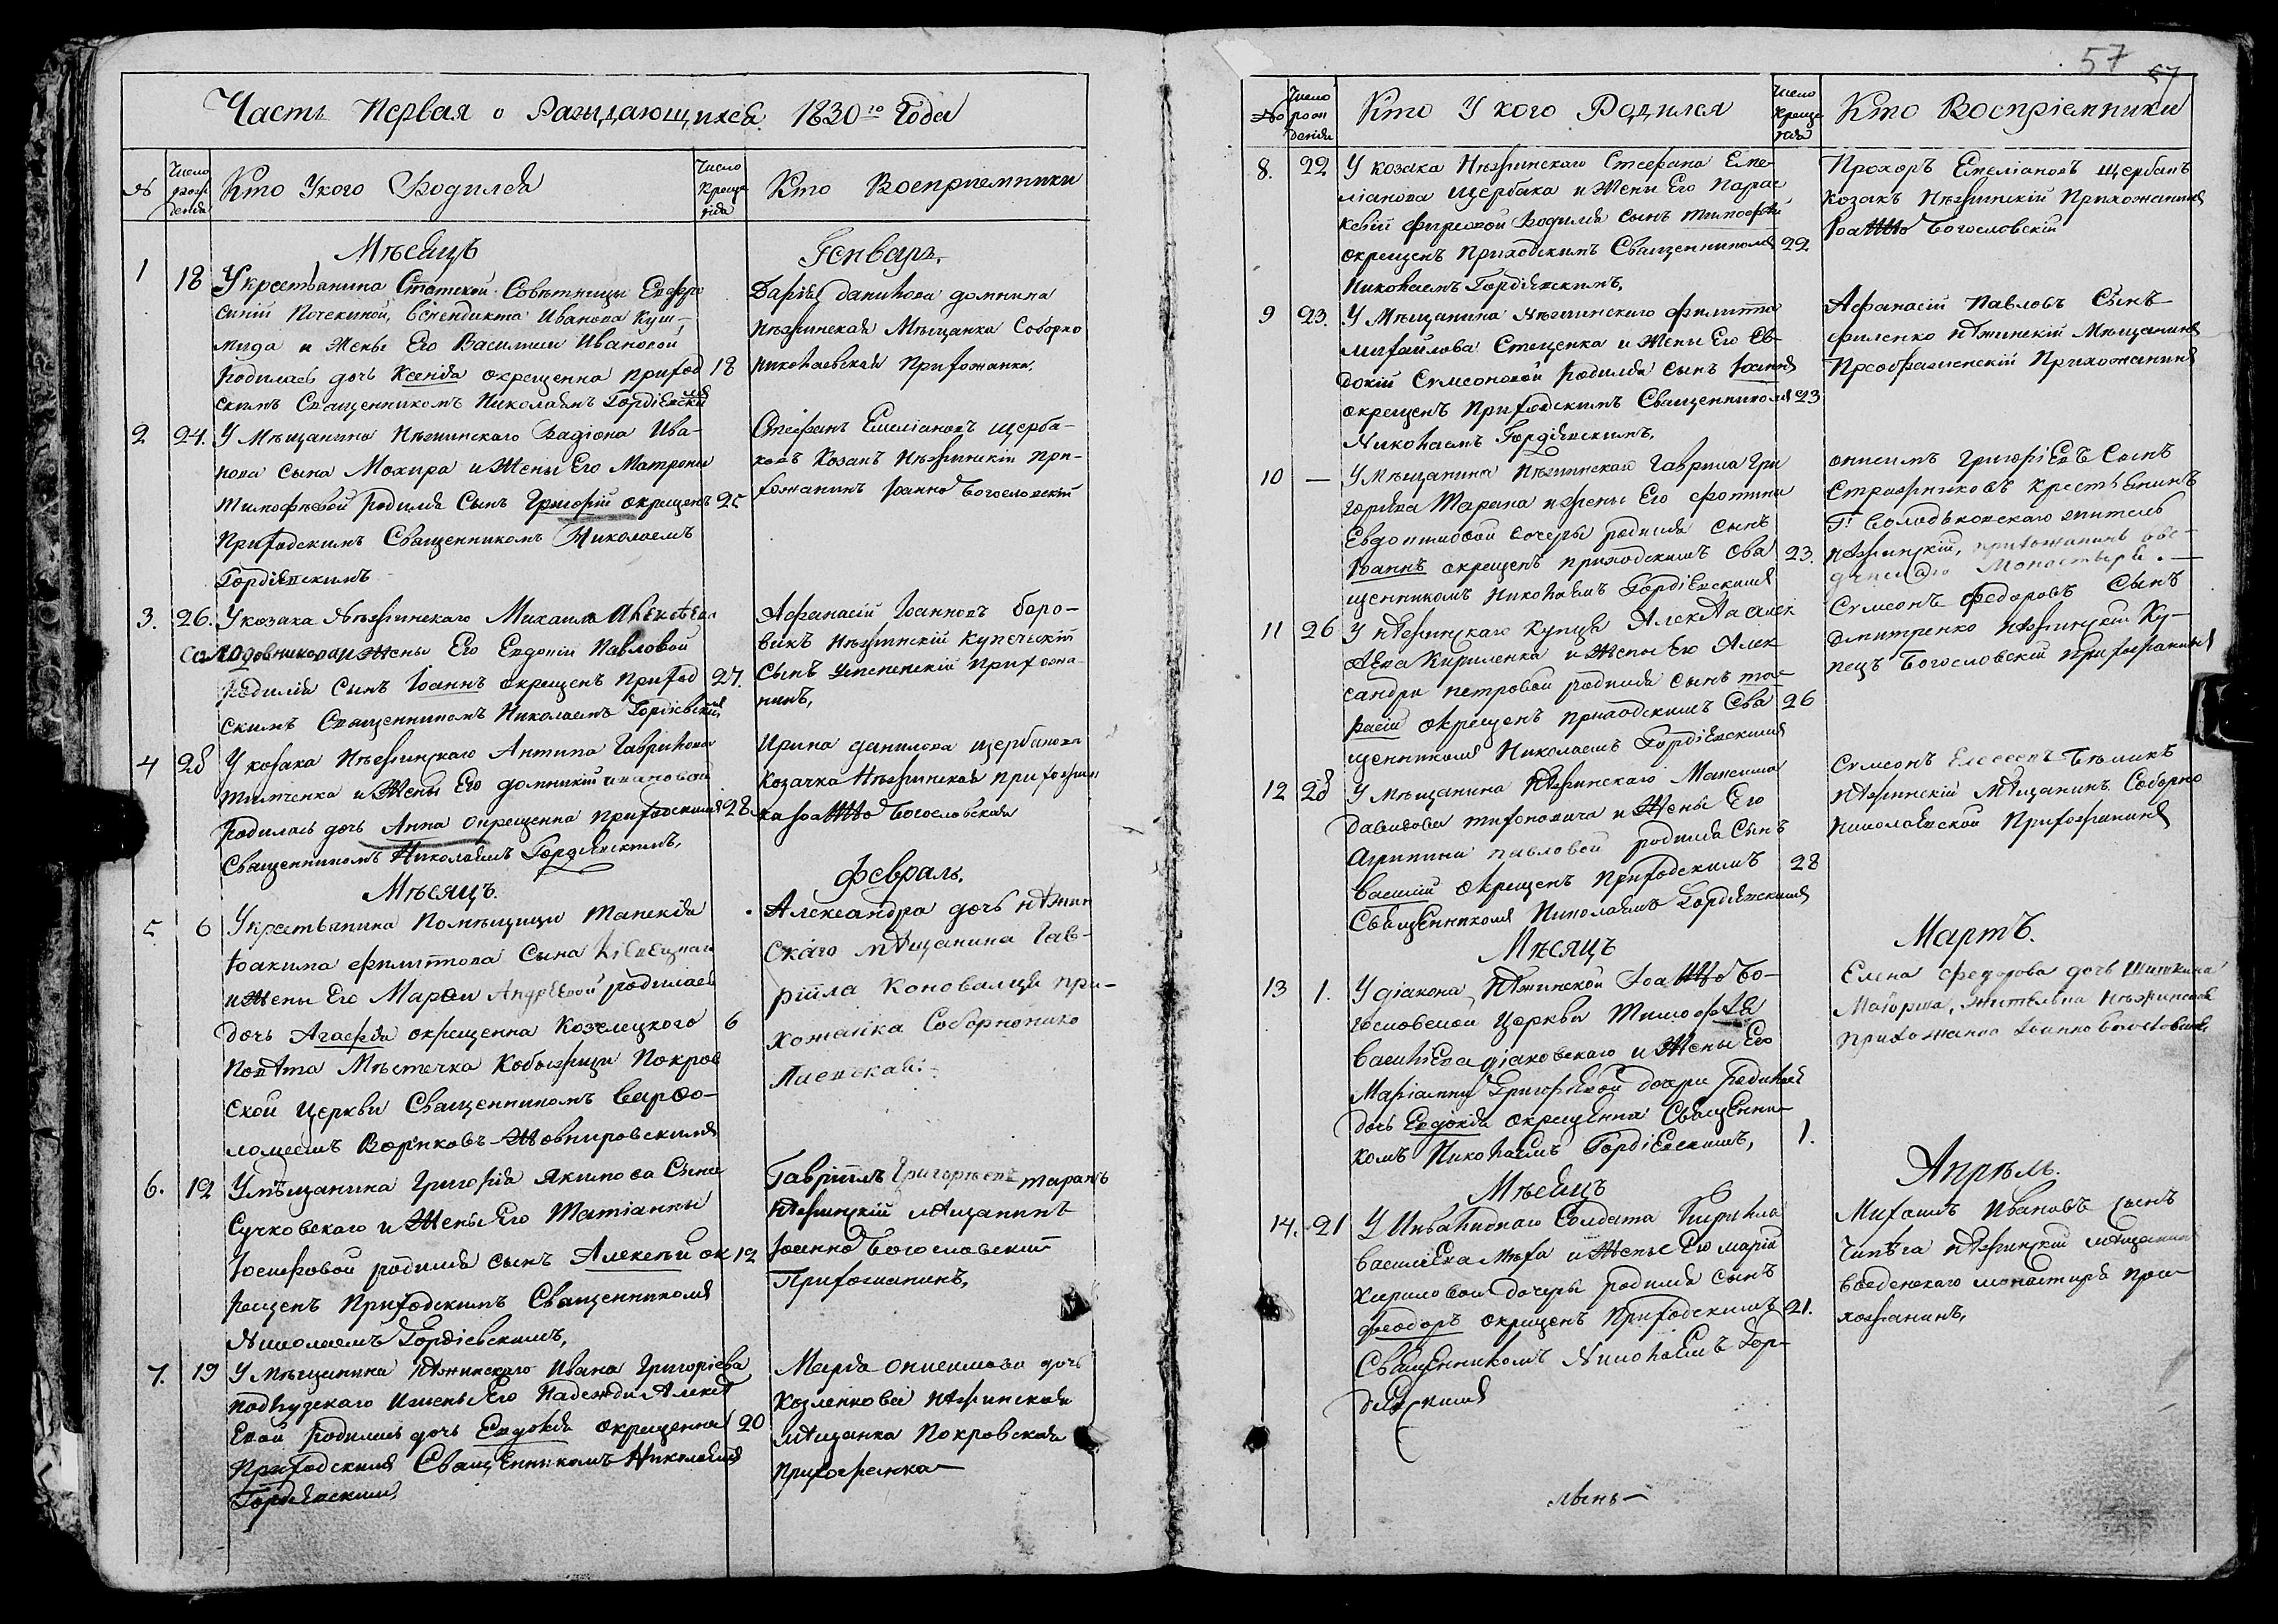 57 57
Часть Первая о Раждающихся 1830го Года
№
Число рождения
Кто Укого Родился
Число крещения
Кто Восприемники
Мѣсяцъ Генварь.
1 18 Укрестьянина Статской Совѣтницы Евфро
синіи Почекиной, Венендикта Иванова Куш-
мида и Жены Его Василисы Ивановой
родилась дочь Ксенія окрещенна приход 18
скимъ Священникомъ Николаемъ Гордіевским
Дарія данилова домнина
Нѣжинская Мѣщанка Соборно
николаевская Прихожанка.
2 24. У Мѣщанина Нѣжинскаго Радіона Ива-
нова сына Мохира и Жены Его Матроны
Тимофѣевой родился Сынъ Григорій окрещенъ 25
Приходскимъ Священникомъ Николаемъ
Гордіевскимъ
Стефанъ Емеліановъ щерба-
ковъ Козакъ Нѣжинскій при-
хожанинъ Іоанно Богословскій
3. 26. У козака Нѣжинскаго Михаила Алексѣева
Солодовникова и Жены Его Евдокіи Павловой
родился Сынъ Іоаннъ окрещенъ приход 27.
скимъ Священникомъ Николаемъ Гордіевским
Афанасій Іоанновъ боро-
викъ Нѣжинскій купеческій
Сынъ успенскій прихожа-
нинъ,
4 28 У козака Нѣжинскаго Антипа Гаврилова
тимченка и Жены Его домникіи ивановой
родилась дочь Анна окрещенна приходскимъ 28.
Священникомъ Николаемъ Гордіевскимъ,
Ирина данилова щербакова
козачка Нѣжинская прихожан
ка Іоанно Богословская
Мѣсяцъ. Февраль.
5 6 Укрестьянина Помѣщицы Танскія
Іоакима филиппова Сына
и Жены Его Марѳы Андреевой родилась
дочь Агафія окрещенна Козелецкого 6
Повѣта Мѣстечка Кобыжчи Покров
ской церкви Священникомъ Варѳо-
ломеемъ
Александра дочь нѣжин
скаго мѣщанина Гав-
ріила Коновалца при-
хожанка Соборнонико
лаевская.
6. 12 Умѣщанина Григорія Якимова Сына
Сучковскаго и Жены Его Татіанны
Іосифовой родился сынъ Алексѣй ок 12
рещенъ Приходскимъ Священникомъ
Николаемъ Гордіевскимъ,
Гавріилъ Григорьевъ таранъ
Нѣжинскій мѣщанинъ
Іоанно Богословский
Прихожанинъ,
7. 19 У Мѣщанина Нѣжинскаго Ивана Григоріева
подлузскаго и жены Его Надежды Алексѣ
Евой родилась дочь Евдокія окрещенна 20
приходскимъ Священникомъ Николаемъ
Гордіевскимъ,
Марѳа онисимова дочь
Козленкова Нѣжинская
мѣщанка Покровская
прихожанка
№
Число рождения
Кто У кого Родился
Число крещения
Кто Воспріемники
8. 22 У козака Нѣжинскаго Стефана Еме-
ліанова щербака и Жены Его Парас
кевіи фирсовой Родился сынъ тимофѣй
окрещенъ Приходскимъ Священникомъ 22
Николаемъ Гордіевскимъ,
Прохоръ Емеліановъ щербакъ
козакъ Нѣжинскій Прихожанинъ
Іоанно Богословскій
9 23. У Мѣщанина Нѣжинскаго филиппа
михайлова Стеценка и Жены Его Ев-
докіи Сѵмеоновой родился сынъ Іоаннъ
окрещенъ приходскимъ Священникомъ 23
Николаемъ Гордіевскимъ,
Афанасій Павловъ Сынъ
филенко нѣжинскій Мѣщанинъ
Преображенскій Прихожанинъ
10 — У Мѣщанина Нѣжинскаго Гаврила Гри
горіева Тарана и жены Его фотины
Евдокимовой дочеры родился сынъ
Іоаннъ окрещенъ приходскимъ Свя 23.
щенникомъ Николаемъ Гордіевскимъ
онисимъ григоріевъ Сынъ
Стражниковъ крестьянинъ
Г. Солодьковскаго житель
нѣжинскій, прихожанинъ вве-
денскаго Монастыря. —
11 26 У нѣжинскаго купца Алексѣя алек
сѣева Кириленка и Жены Его Алек
сандры петровой родился сынъ та-
расій окрещенъ приходскимъ Свя 26
щенникомъ Николаемъ Гордіевскимъ
Сѵмеонъ федоровъ Сынъ
дмитренко нѣжинскій Ку-
пецъ Богословскій Прихожанинъ
12 28 У мѣщанина Нѣжинскаго Максима
давидова тихоновича и Жены Его
Агрипины павловой родился Сынъ
Василій окрещенъ Приходскимъ 28
Священникомъ Николаемъ Гордіевскимъ
Сѵмеонъ Елесеевъ Бѣликъ
нѣжинскій мѣщанинъ Соборно
николаевской Прихожанинъ
Мѣсяцъ Мартъ.
13 1. У діакона Нѣжинской Іоанно Бо-
гословской Церкви Тимофѣя
Василіева діаковскаго и Жены Его
Маріанны Григорьевой дочери родилась
дочь Евдокія окрещенна Священни-
комъ Николаемъ Гордіевскимъ, 1.
Елена федорова дочь Шишкина
Маіорша, жительна Нѣжинская
прихожанка Іоанно Богословская
Мѣсяцъ Апрѣль.
14. 21 У Инвалиднаго Солдата Кирила
Василіева и Жены Его маріи
кириловой дочеры родился сынъ
Феодоръ окрещенъ Приходскимъ 21.
Священникомъ Николаемъ Гор-
діевскимъ
Михаилъ Ивановъ сынъ
Чипѣга нѣжинскій мѣщанинъ
введенскаго монастыря при-
хожанинъ,